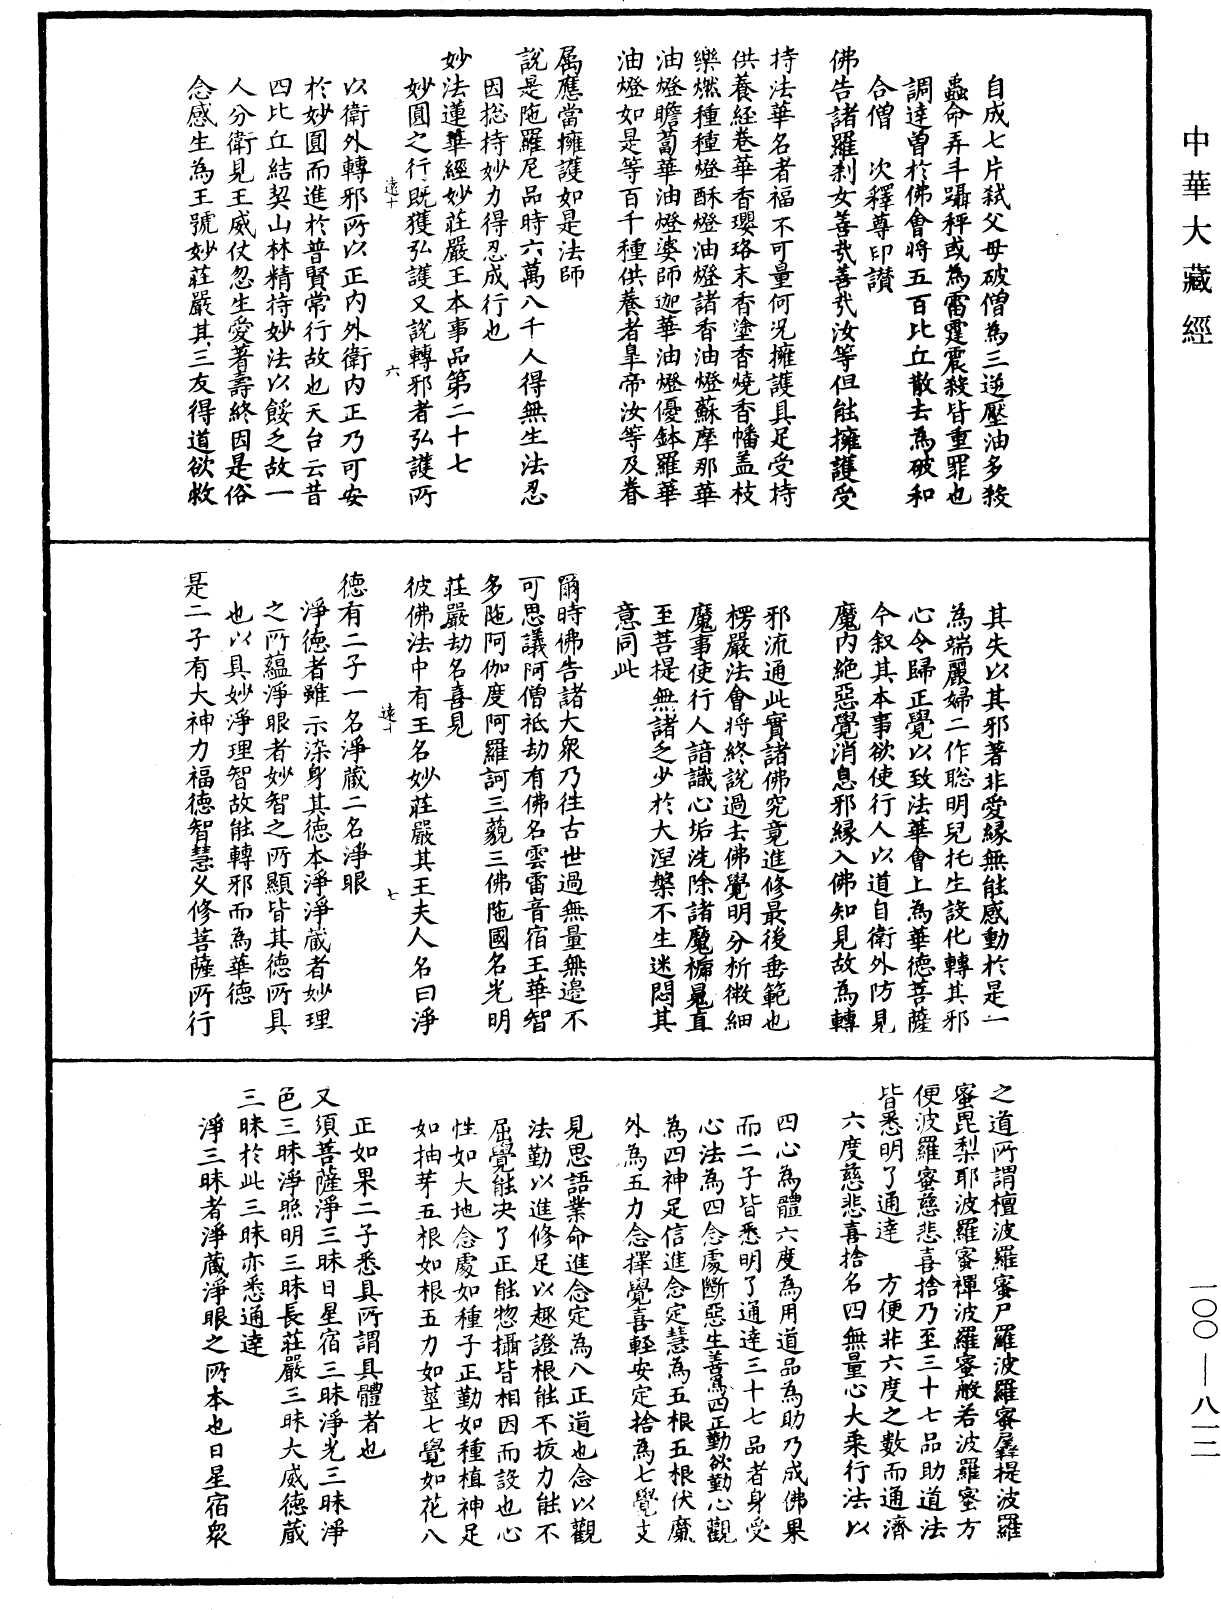 中華大藏經
自成七片弒父母破僧為三逆壓油多殺
蟲命弄斗躡秤或為雷霆震殺皆重罪也
調達曾於佛會將五百比丘散去為破和
合僧　次釋尊印讚
佛告諸羅剎女善哉善哉汝等但能擁護受
持法華名者福不可量何況擁護具足受持
供養經卷華香瓔珞末香塗香燒香幡盖枝
樂燃種種燈酥燈油燈諸香油燈蘇摩那華
油燈瞻蔔華油燈婆師迦華油燈優鉢羅華
油燈如是等百千種供養者皐帝汝等及眷
屬應當擁護如是法師
說是陁羅尼品時六萬八千人得無生法忍
因揔持妙力得忍成行也
妙法蓮華經妙莊嚴王本事品第二十七
妙圓之行既獲弘護又說轉邪者弘護所
遠十　六
以衛外轉邪所以正內外衛內正乃可安
於妙圓而進於普賢常行故也天台云昔
四比丘結契山林精持妙法以餒乏故一
人分衛見王威仗忽生愛著壽終因是俗
念感生為王號妙莊嚴其三友得道欲救
其失以其邪著非愛緣無能感動於是一
為端麗婦二作聡明兒托生設化轉其邪
心令歸正覺以致法華會上為華德菩薩
今叙其本事欲使行人以道自衛外防見
魔內絕惡覺消息邪緣入佛知見故為轉
邪流通此實諸佛究竟進修最後垂範也
楞嚴法會將終說過去佛覺明分析微細
魔事使行人諳識心垢洗除諸魔褫晃直
至菩提無諸乏少於大涅槃不生迷悶其
意同此
爾時佛告諸大衆乃往古世過無量無邊不
可思議阿僧祗劫有佛名雲雷音宿王華智
多陁阿伽度阿羅訶三藐三佛陁國名光明
莊嚴劫名喜見
彼佛法中有王名妙莊嚴其王夫人名曰淨
遠十　七
德有二子一名淨藏二名淨眼
淨德者雖示染身其德本淨淨藏者妙理
之所蘊淨眼者妙智之所顯皆其德所具
也以具妙淨理智故能轉邪而為華德
是二子有大神力福德智慧久修菩薩所行
之道所謂檀波羅蜜尸羅波羅蜜羼提波羅
蜜毘梨耶波羅蜜禪波羅蜜般若波羅蜜方
便波羅蜜慈悲喜捨乃至三十七品助道法
皆悉明了通達　方便非六度之數而通濟
六度慈悲喜捨名四無量心大乘行法以
四心為體六度為用道品為助乃成佛果
而二子皆悉明了通達三十七品者身受
心法為四念處斷惡生善為四正勤欲勤心觀
為四神足信進念定慧為五根五根伏魔
外為五力念擇覺喜輕安定捨為七覺支
見思語業命進念定為八正道也念以觀
法勤以進修足以趣證根能不拔力能不
屈覺能決了正能惣攝皆相因而設也心
性如大地念處如種子正勤如種植神足
如抽芽五根如根五力如莖七覺如花八
正如果二子悉具所謂具體者也
又須菩薩淨三昧日星宿三昧淨光三昧淨
色三昧淨照明三昧長莊嚴三昧大威德藏
三昧於此三昧亦悉通達
淨三昧者淨藏淨眼之所本也日星宿衆
一〇〇—八一二